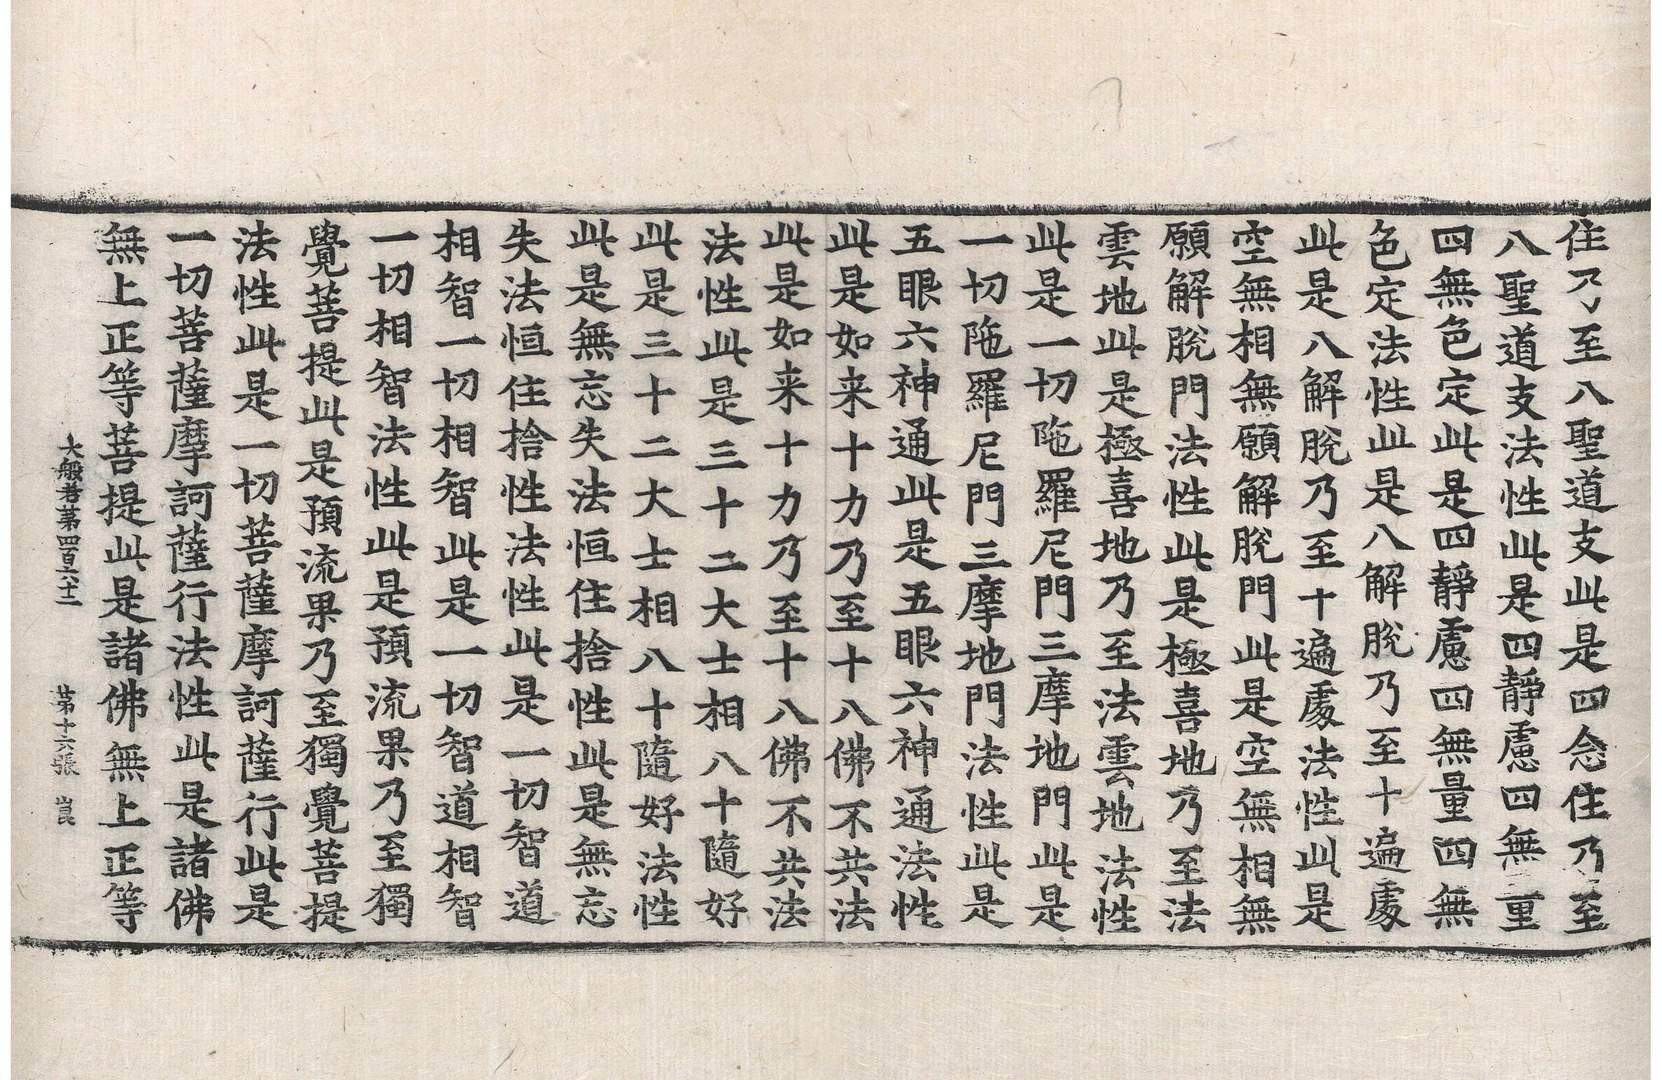 住乃至八聖道支此是四念住乃至
八聖道支法性此是四靜慮四無量
四無色定此是四靜慮四無量四無
色定法性此是八解脫乃至十遍處
此是八解脫乃至十遍處法性此是
空無相無願解脫門此是空無相無
願解脫門法性此是極喜地乃至法
雲地此是極喜地乃至法雲地法性
此是一切陁羅尼門三摩地門此是
一切陁羅尼門三摩地門法性此是
五眼六神通此是五眼六神通法性
此是如来十力乃至十八佛不共法
此是如来十力乃至十八佛不共法
法性此是三十二大士相八十隨好
此是三十二大士相八十隨好法性
此是無忘失法恒住捨性此是無忘
失法恒住捨性法性此是一切智道
相智一切相智此是一切智道相智
一切相智法性此是預流果乃至獨
覺菩提此是預流果乃至獨覺菩提
法性此是一切菩薩摩訶薩行此是
一切菩薩摩訶薩行法性此是諸佛
無上正等菩提此是諸佛無上正等
大般若第四百六十二 第十六張 崑